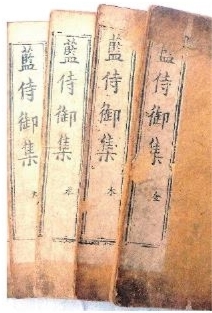 藍侍御集
藍侍御集
藍侍御集
藍侍御集